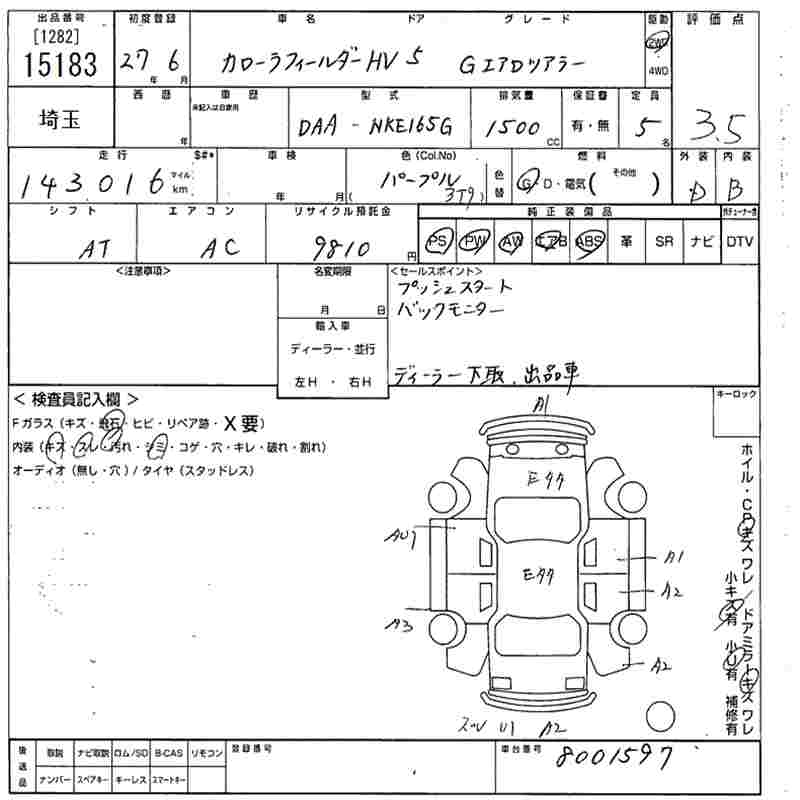 出品番号 初度登録 車名 ドア グレード 駆動 評価点
[1282]
15183 27年 6月 カローラフィールダーHV 5 Gエアロツアラー 2WD 4WD 3.5
埼玉 西暦 年 車歴 未記入は自家用 型式 排気量 保証書 定員
DAA-NKE165G 1500cc 有・無 5名
走行 $#* 車検 色(Col.No) 燃料 外装 内装
143,016 マイル km 年 月 パープル (3T9) 色替 G・D・電気( その他 ) D B
シフト エアコン リサイクル預託金 純正装備品 地デジチューナー付
AT AC 9810円 PS PW AW エアB ABS 革 SR ナビ DTV
<注意事項> 名変期限 <セールスポイント>
プッシュスタート
月 日 バックモニター
輸入車
ディーラー・並行
左H・右H ディーラー下取、出品車
< 検査員記入欄 > キーロック
Fガラス(キズ・飛石・ヒビ・リペア跡・X要)
内装(キズ・スレ・汚れ・シミ・コゲ・穴・キレ・破れ・割れ)
オーディオ(無し・穴)/タイヤ(スタッドレス)
A1
Eタタ
AU1
Eタタ A1
A2
A3
A2
スレ U1 A2
ホイル・CPキズワレ/ドアミラーキズワレ
小キズ有 小U有 補修有
後送品 取説 ナビ取説 ロム/SD B-CAS リモコン 登録番号 車台番号
ナンバー スペアキー キーレス スマートキー 8001597